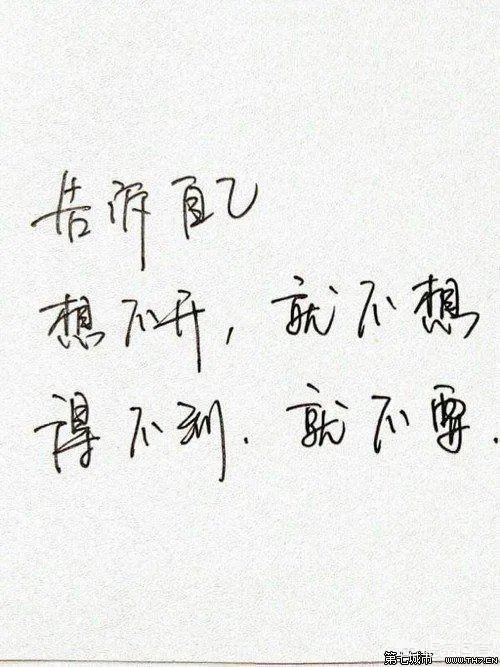 告诉自己
想不开，就不想
得不到．就不要．
第七城市 WWW.TH7.CN